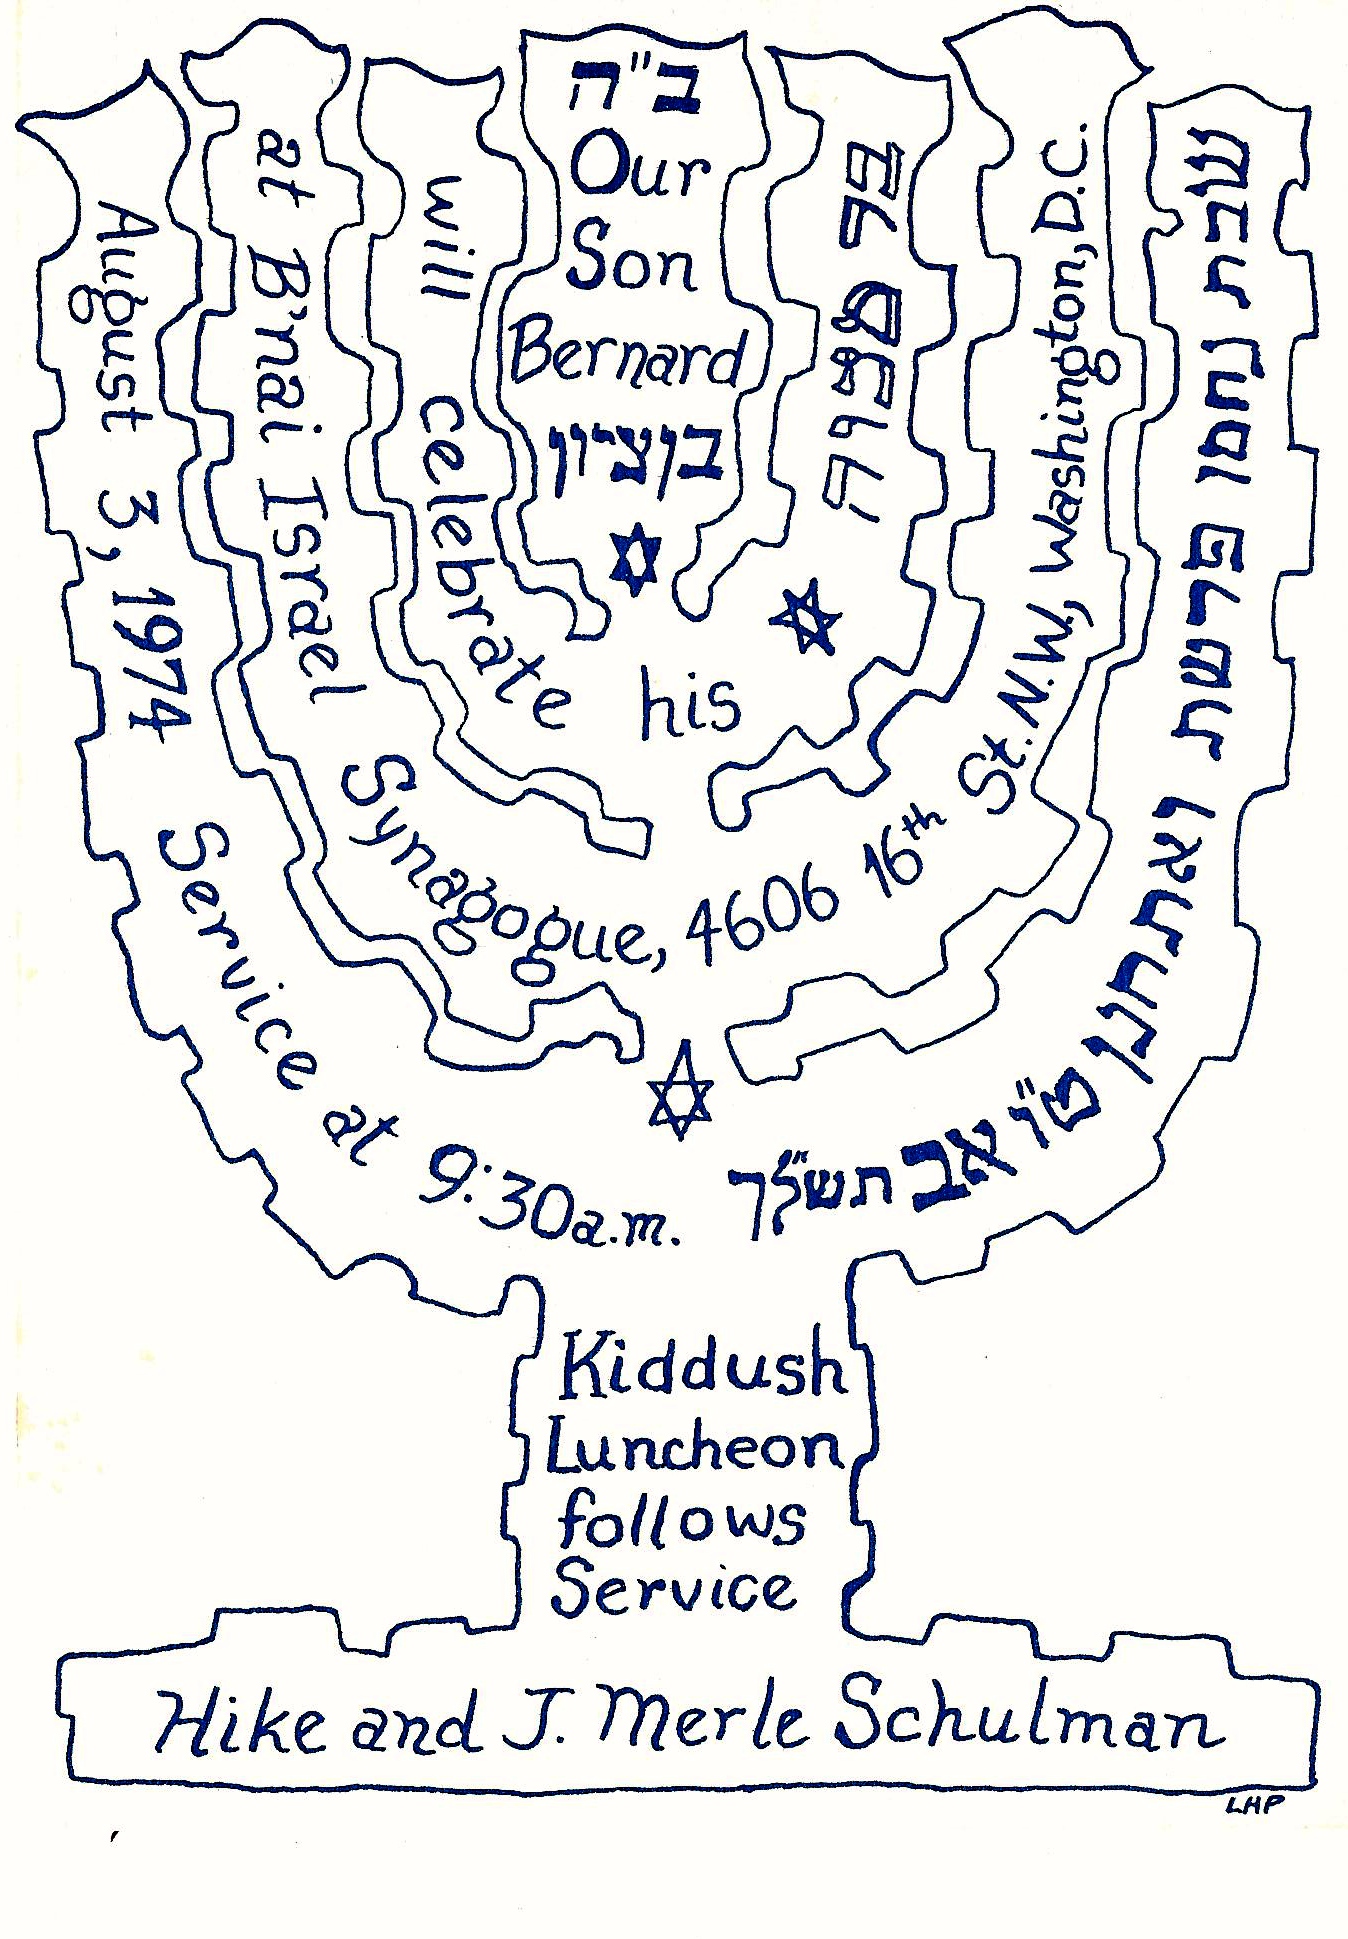 ב"ה
Our
Son
Bernard
בן ציון
will celebrate his בר מצוה
at B'nai Israel Synagogue, 4606 16th St. N.W., Washington, D.C.
August 3, 1974 Service at 9:30 a.m.
שבת נחמו פרשת ואתחנן ט"ו אב תשל"ד
Kiddush
Luncheon
follows
Service
Hike and J. Merle Schulman
LHP